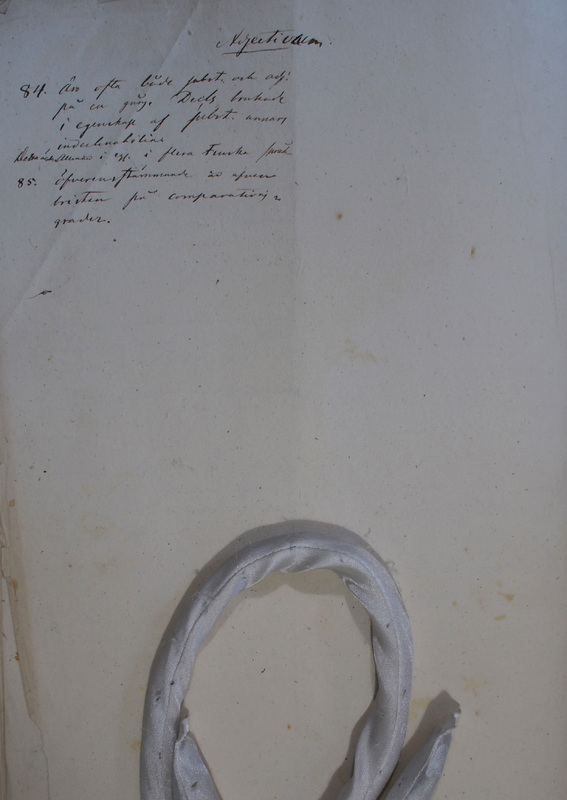 Adjectivum.
84. Äro ofta både subst. och adj.
på en gång. Decls brukade
i egenskap af subst. annars
indeclinabilia.
i flera Finska
85. öfverensstämmande
bristen på comparations
grader.